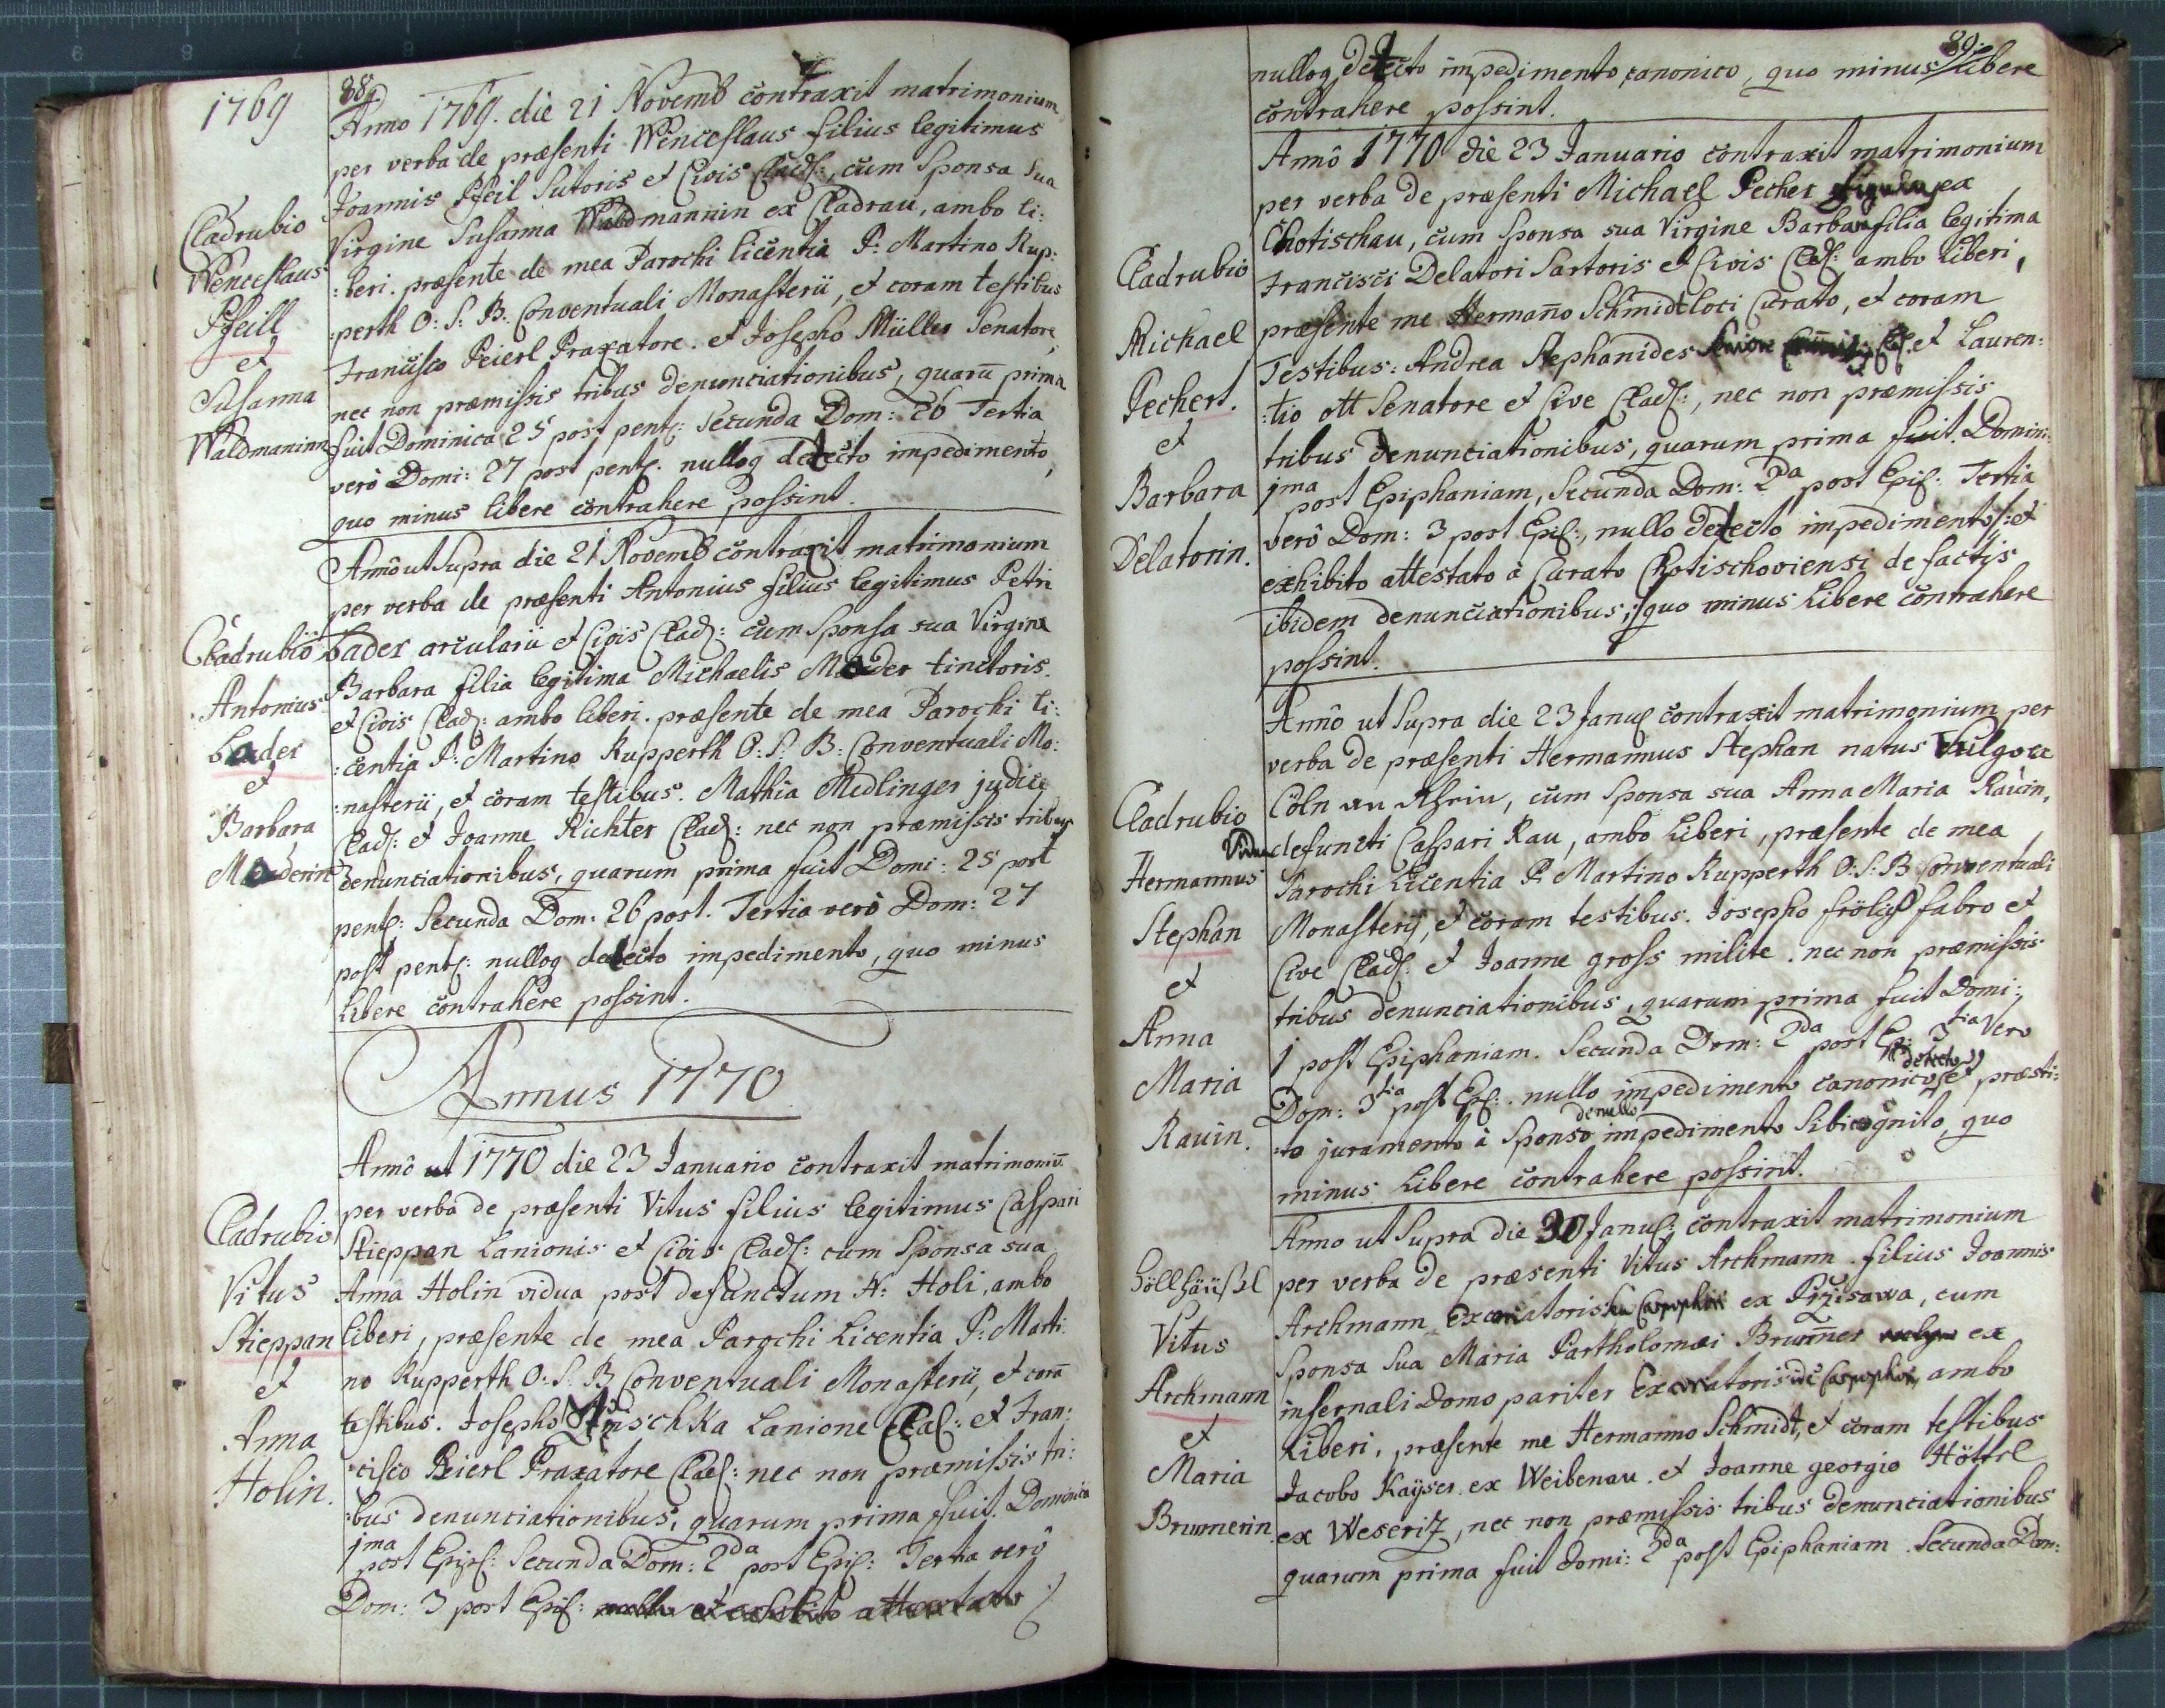 1769
88
Anno 1769. die 21 Novemb contraxit matrimonium
per verba de præsenti Wenceslaus filius legitimus
Joannis Pfeil Sutoris et Civis Clad:, cum Sponsa sua
Virgine Susanna Waldmannin ex Cladrau, ambo li:
:beri. præsente de mea Parochi licentia P: Martino Rup:
:perth O: S: B. Conventuali Monasterii, et coram testibus
Francisco Peierl Praxatore. et Josepho Müller Senatore,
nec non præmissis tribus denunciationibus, quarū prima
fuit Dominica 25 post pent: Secunda Dom: 26 Tertia
verò Domi: 27 post pent: nulloq detecto impedimento,
quo minus libere contrahere possint.
Cladrubio
Wenceslaus
Pfeill
et
Susanna
Waldmaninn
Annô ut Supra die 21 Novemb contraxit matrimonium
per verba de præsenti Antonius filius legitimus Petri
Lader arcularii et Civis Clad: cum Sponsa sua Virgine
Barbara filia legitima Michaelis Mader tinctoris
et Civis Clad: ambo liberi. præsente de mea Parochi li:
:centia P: Martino Rupperth O: S: B: Conventuali Mo:
:nasterii, et coram testibus. Mathia Midlinger judice
Clad: et Joanne Richter Clad: nec non præmissis tribus
denunciationibus, quarum prima fuit Domi: 25 post
pent: Secunda Dom: 26 post. Tertia verò Dom: 27
post pent: nulloq detecto impedimento, quo minus
libere contrahere possint.
Cladrubio
Antonius
Lader
et
Barbara
Maderin
Annus 1770
Annô ut 1770 die 23 Januario contraxit matrimoniū
per verba de præsenti Vitus filius legitimus Caspari
Stieppan Lanionis et Civis Clad: cum Sponsa sua
Anna Holin vidua post defunctum N: Holi, ambo
liberi, præsente de mea Parochi Licentia P: Marti
no Rupperth O: S: B Conventuali Monasterii, et corā
testibus. Josepho Lanione Clad: et Fran:
:cisco Peierl Praxatore Clad: nec non præmissis tri:
:bus denunciationibus, quarum prima fuit Dominica
1ma post Epiph: Secunda Dom: 2da post Epi: Tertia verò
Dom: 3 post Epi: nullo et exhibito attestato
Cladrubio
Vitus
Stieppan
et
Anna
Holin.
89.
nulloq detecto impedimento canonico, quo minus libere
contrahere possint.
Annô 1770 die 23 Januario contraxit matrimonium
per verba de præsenti Michael Pecher ex
Chotischau, cum Sponsa sua Virgine Barbara filia legitima
Francisci Delatori Sartoris et Civis Clad: ambo liberi,
præsente me Hermaño Schmidt loci Curato, et coram
Testibus: Andrea Stephanides et Lauren:
:tio ott Senatore et Cive Clad:, nec non præmissis
tribus denunciationibus, quarum prima fuit Domini:
1ma post Epiphaniam, Secunda Dom: 2da post Epi: Tertia
verò Dom: 3 post Epi:, nullo detecto impedimento et
exhibito attestato à Curato Chotischoviensi de factis
ibidem denunciationibus; quo minus Libere contrahere
possint.
Cladrubio
Michael
Pechert.
et
Barbara
Delatorin.
Annô ut Supra die 23 Janu: contraxit matrimonium per
verba de præsenti Hermannus Stephan natus Vulgo ex
Cöln am Rhein, cum Sponsa sua Anna Maria Rauin,
Vidua defuncti Caspari Rau, ambo Liberi, præsente de mea
Parochi Licentia P. Martino Rupperth O: S: B Conventuali
Monasterij, et coram testibus. Josepho frölich fabro et
Cive Clad: et Joanne gross milite. nec non præmissis
tribus denunciationibus, quarum prima fuit Domi:
1 post Epiphaniam. Secunda Dom: 2da post Ep: 3tia Vero
Dom: 3tia post Epi: nullo impedimento canonico detecto et præsti:
:to juramento à Sponso de nullo impedimento sibi cognito, quo
minus Libere contrahere possint.
Cladrubio
Hermannus
Stephan
et
Anna
Maria
Rauin.
Anno ut Supra die 30 Janu: contraxit matrimonium
per verba de præsenti Vitus Archmann filius Joannis
Archmann Excoriatoris ex Przisawa, cum
Sponsa Sua Maria Partholomæi Brunner ex
infernali Domo pariter Excoriatoris ambo
Liberi, præsente me Hermanno Schmidt, et coram testibus
Jacobo Kayser ex Weibenau. et Joanne georgio Höttel
ex Weseritz, nec non præmissis tribus denunciationibus
quarum prima fuit Domi: 2da post Epiphaniam. Secunda Dom:
Höllhäußl
Vitus
Archmann
et
Maria
Brunnerin